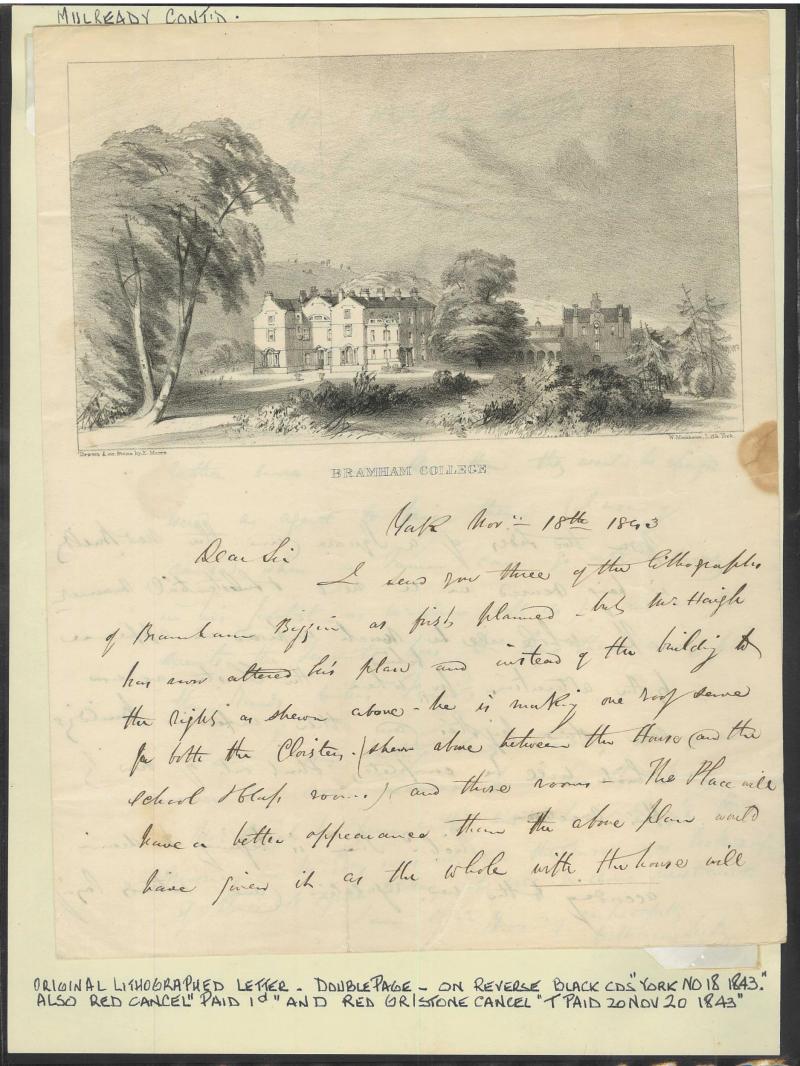 MULREADY CONT'D.
Drawn & on Stone by E. Moore
W. Monkhouse, Lith. York.
BRAMHAM COLLEGE
York Nov:: 18th 1843
Dear Sir
I send you three of the Lithographs
of Bramham Biggin as first planned - but Mr. Haigh
has now altered his plan and instead of the building to
the right as shewn above - he is making one roof serve
for both the Cloisters. (shewn above between the House and the
School & Class rooms) and those rooms - The Place will
have a better appearance than the above plan would
have given it as the whole with the house will
ORIGINAL LITHOGRAPHED LETTER - DOUBLE PAGE - ON REVERSE BLACK CDS "YORK NO 18 1843."
ALSO RED CANCEL "PAID 1d" AND RED GR/STONE CANCEL "T PAID 20 NOV 20 1843"